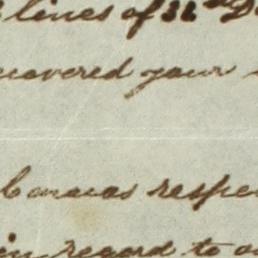 lines of 31st
recovered your
Caracas respe
in regard to